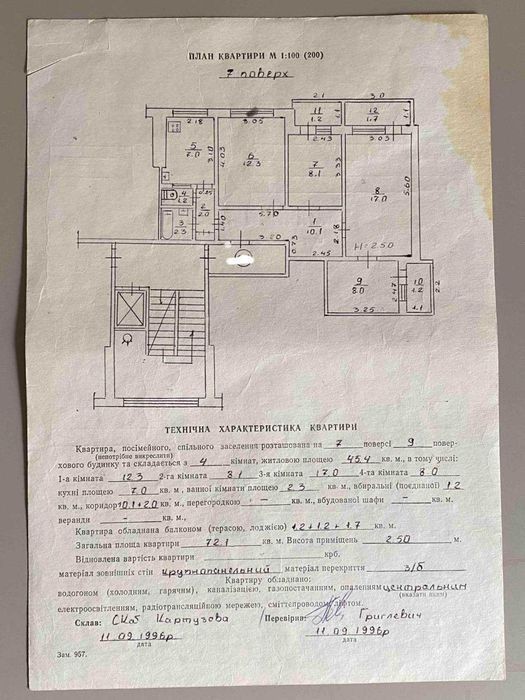 ПЛАН КВАРТИРИ М 1:100 (200)
7 поверх
2.1 3.0
11
1.2
1.1
12
1.7
1.1
2.18 3.05 2.43 3.03
5
7.0
3.10
4.03
6
12.3
7
8.1
3.33
8
17.0
5.60
4
1.2
0.85
2
2.0
3
2.3
1.40
5.70
1
10.1
3.20
0.73
2.18
2.45
H=2.50
9
8.0
3.25
2.47
10
1.2
1.1
2.2
ТЕХНІЧНА ХАРАКТЕРИСТИКА КВАРТИРИ
Квартира, посімейного, спільного заселення розташована на 7 поверсі 9 повер-
(непотрібне викреслити)
хового будинку та складається з 4 кімнат, житловою площею 45.4 кв. м., в тому числі:
1-а кімната 12.3 2-га кімната 8.1 3-я кімната 17.0 4-та кімната 8.0
кухні площею 7.0 кв. м., ванної кімнати 2.3 кв. м., вбиральні (поєднаної) 1.2
кв. м., коридор 10.1+2.0 кв. м., перегородкою - кв. м., вбудованої шафи - кв. м.,
веранди - кв. м.,
Квартира обладнана балконом (терасою, лоджією) 1.2+1.2+1.7 кв. м.
Загальна площа квартири 72.1 кв. м. Висота приміщень 2.50 м.
Відновлена вартість квартири крб.
матеріал зовнішніх стін крупнопанельний матеріал перекриття з/б
Квартиру обладнано:
водогоном (холодним, гарячим), каналізацією, газопостачанням, опаленням центральним
(вказати яким)
електроосвітленням, радіотрансляційною мережею, сміттєпроводом, ліфтом.
Склав: Картузова Перевірив: Григлевич
11.09.1996р 11.09.1996р
дата дата
Зам. 957.